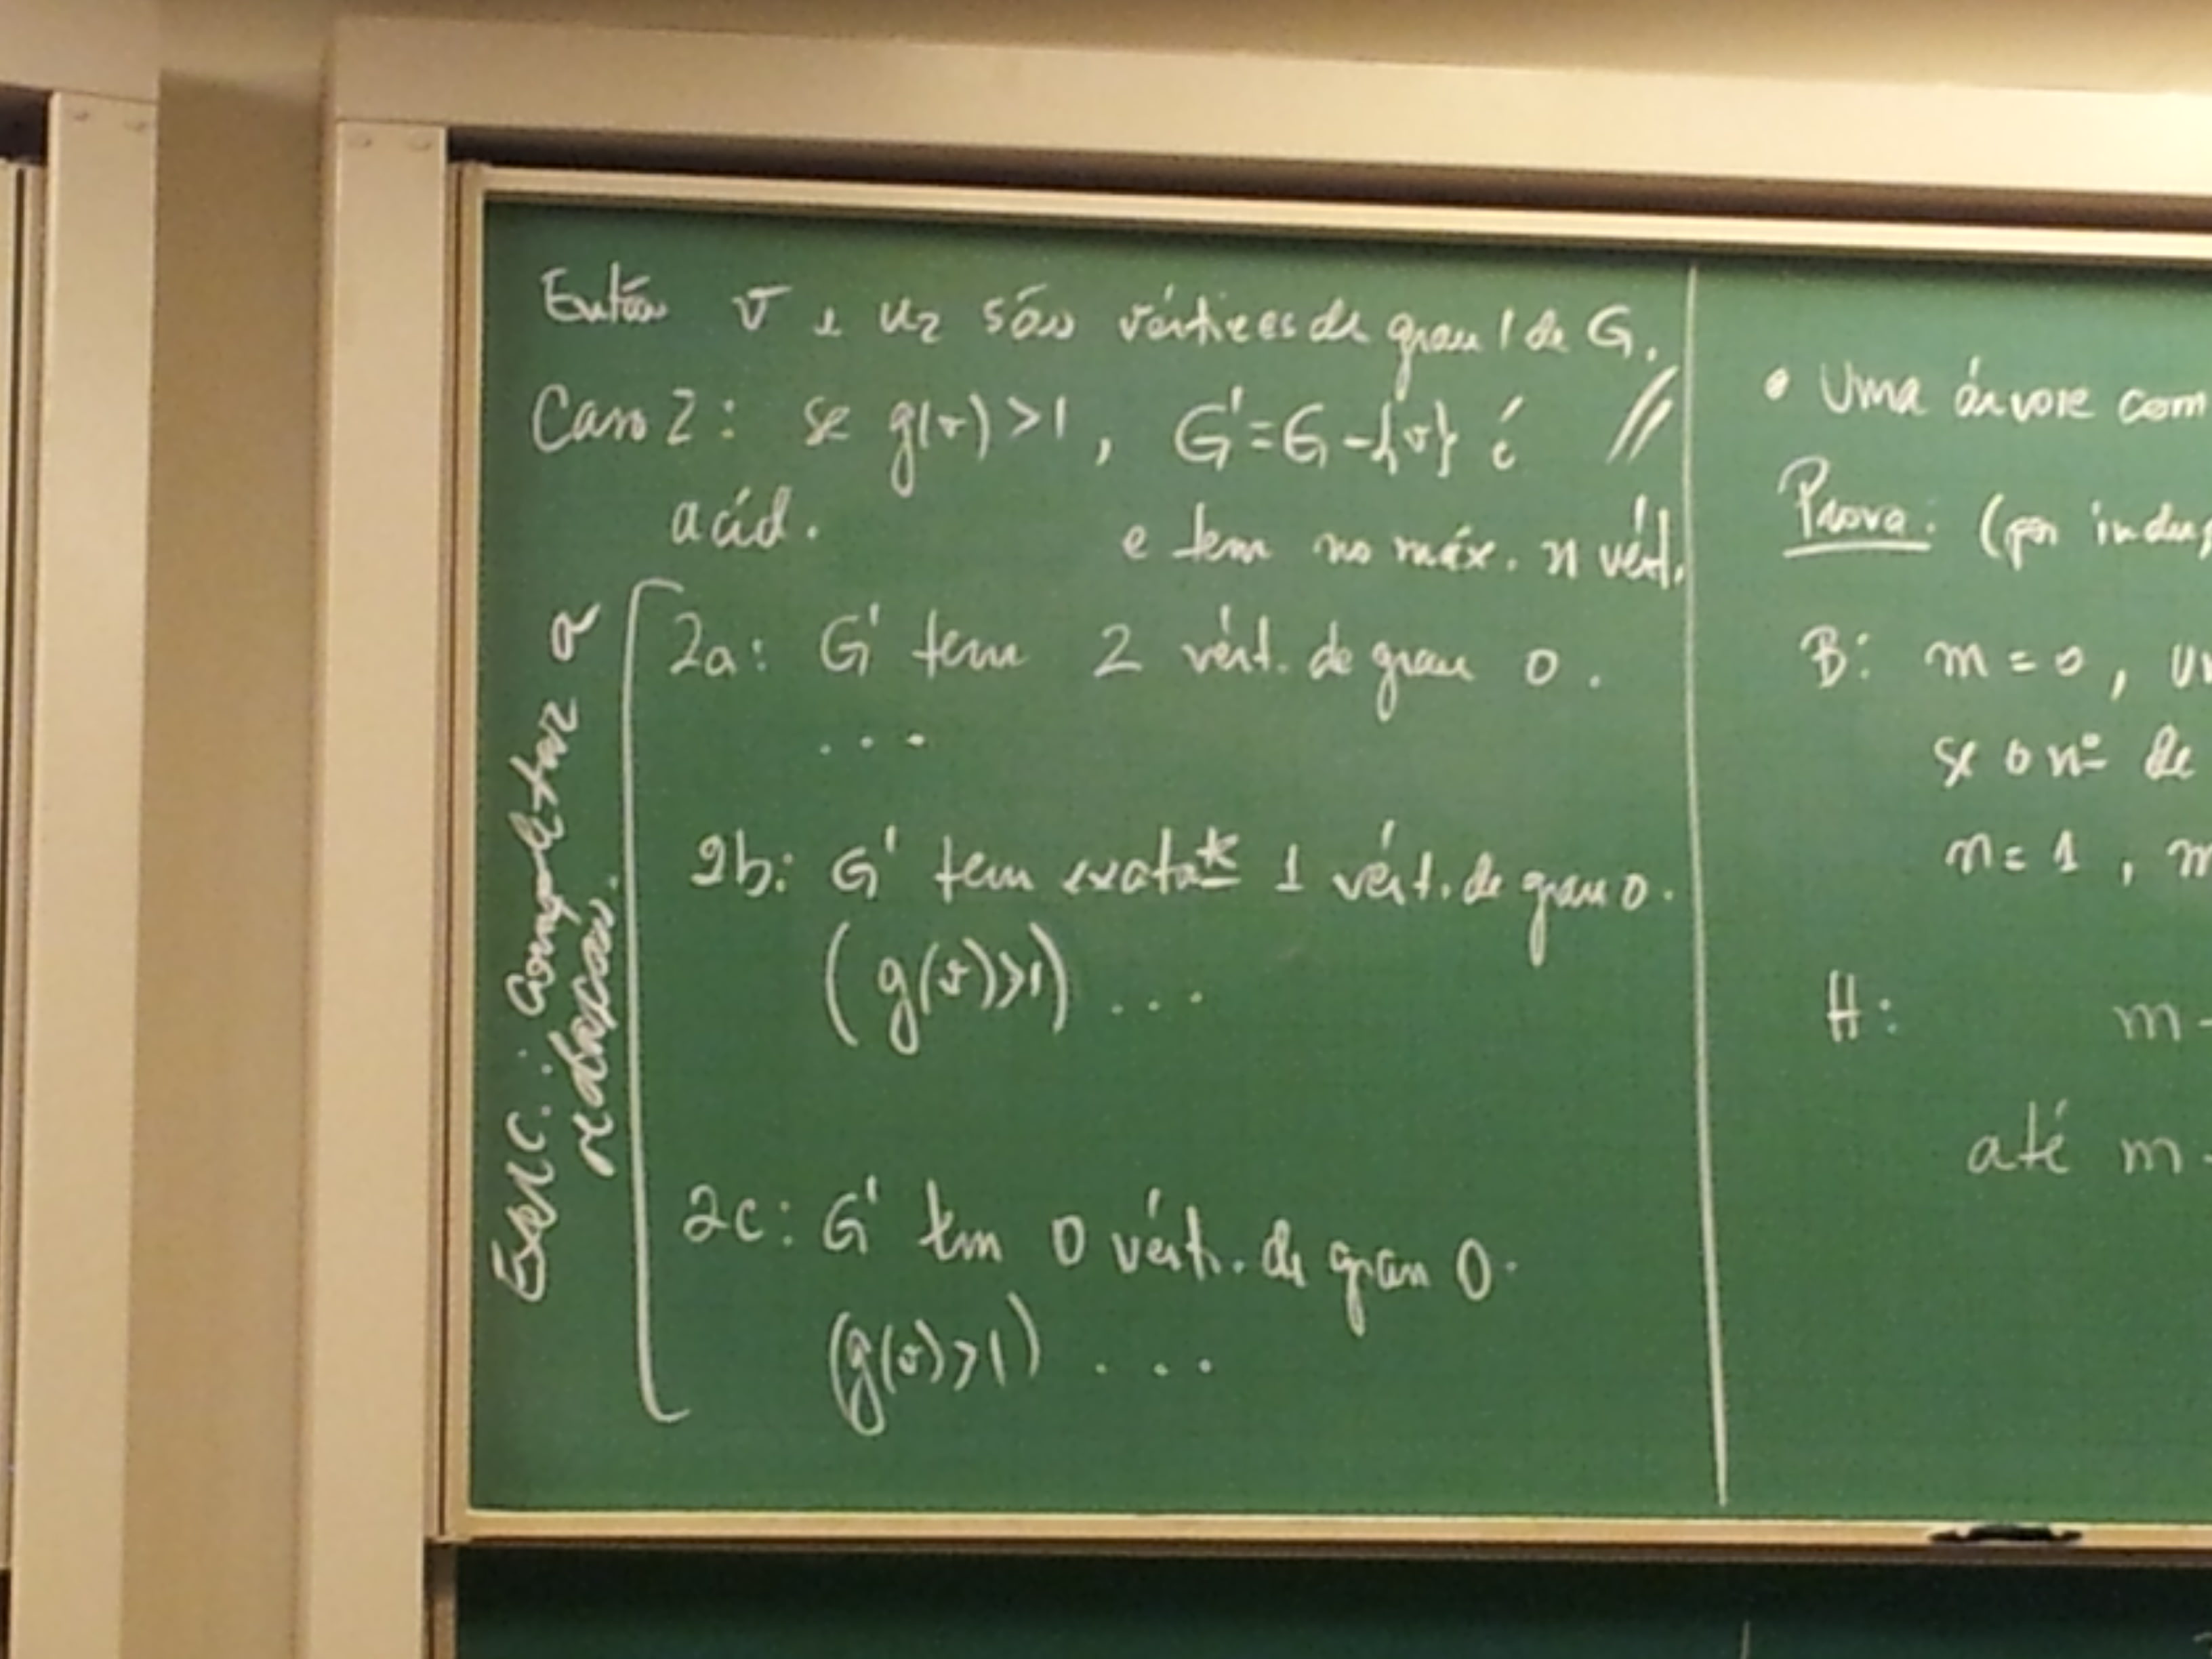 Então v e u2 são vértices de grau 1 de G. //
Caso 2: se g(v) > 1, G' = G - {v} é
acícl. e tem no máx. n vért.
Exerc.: completar a
redação.
2a: G' tem 2 vért. de grau 0.
...
2b: G' tem exatate 1 vért. de grau 0.
(g(v)>1) ...
2c: G' tem 0 vért. de grau 0.
(g(v)>1) ...
• Uma árvore com
Prova: (por induç
B: m = 0, um
se o nº de
n = 1, m
H: m -
até m -